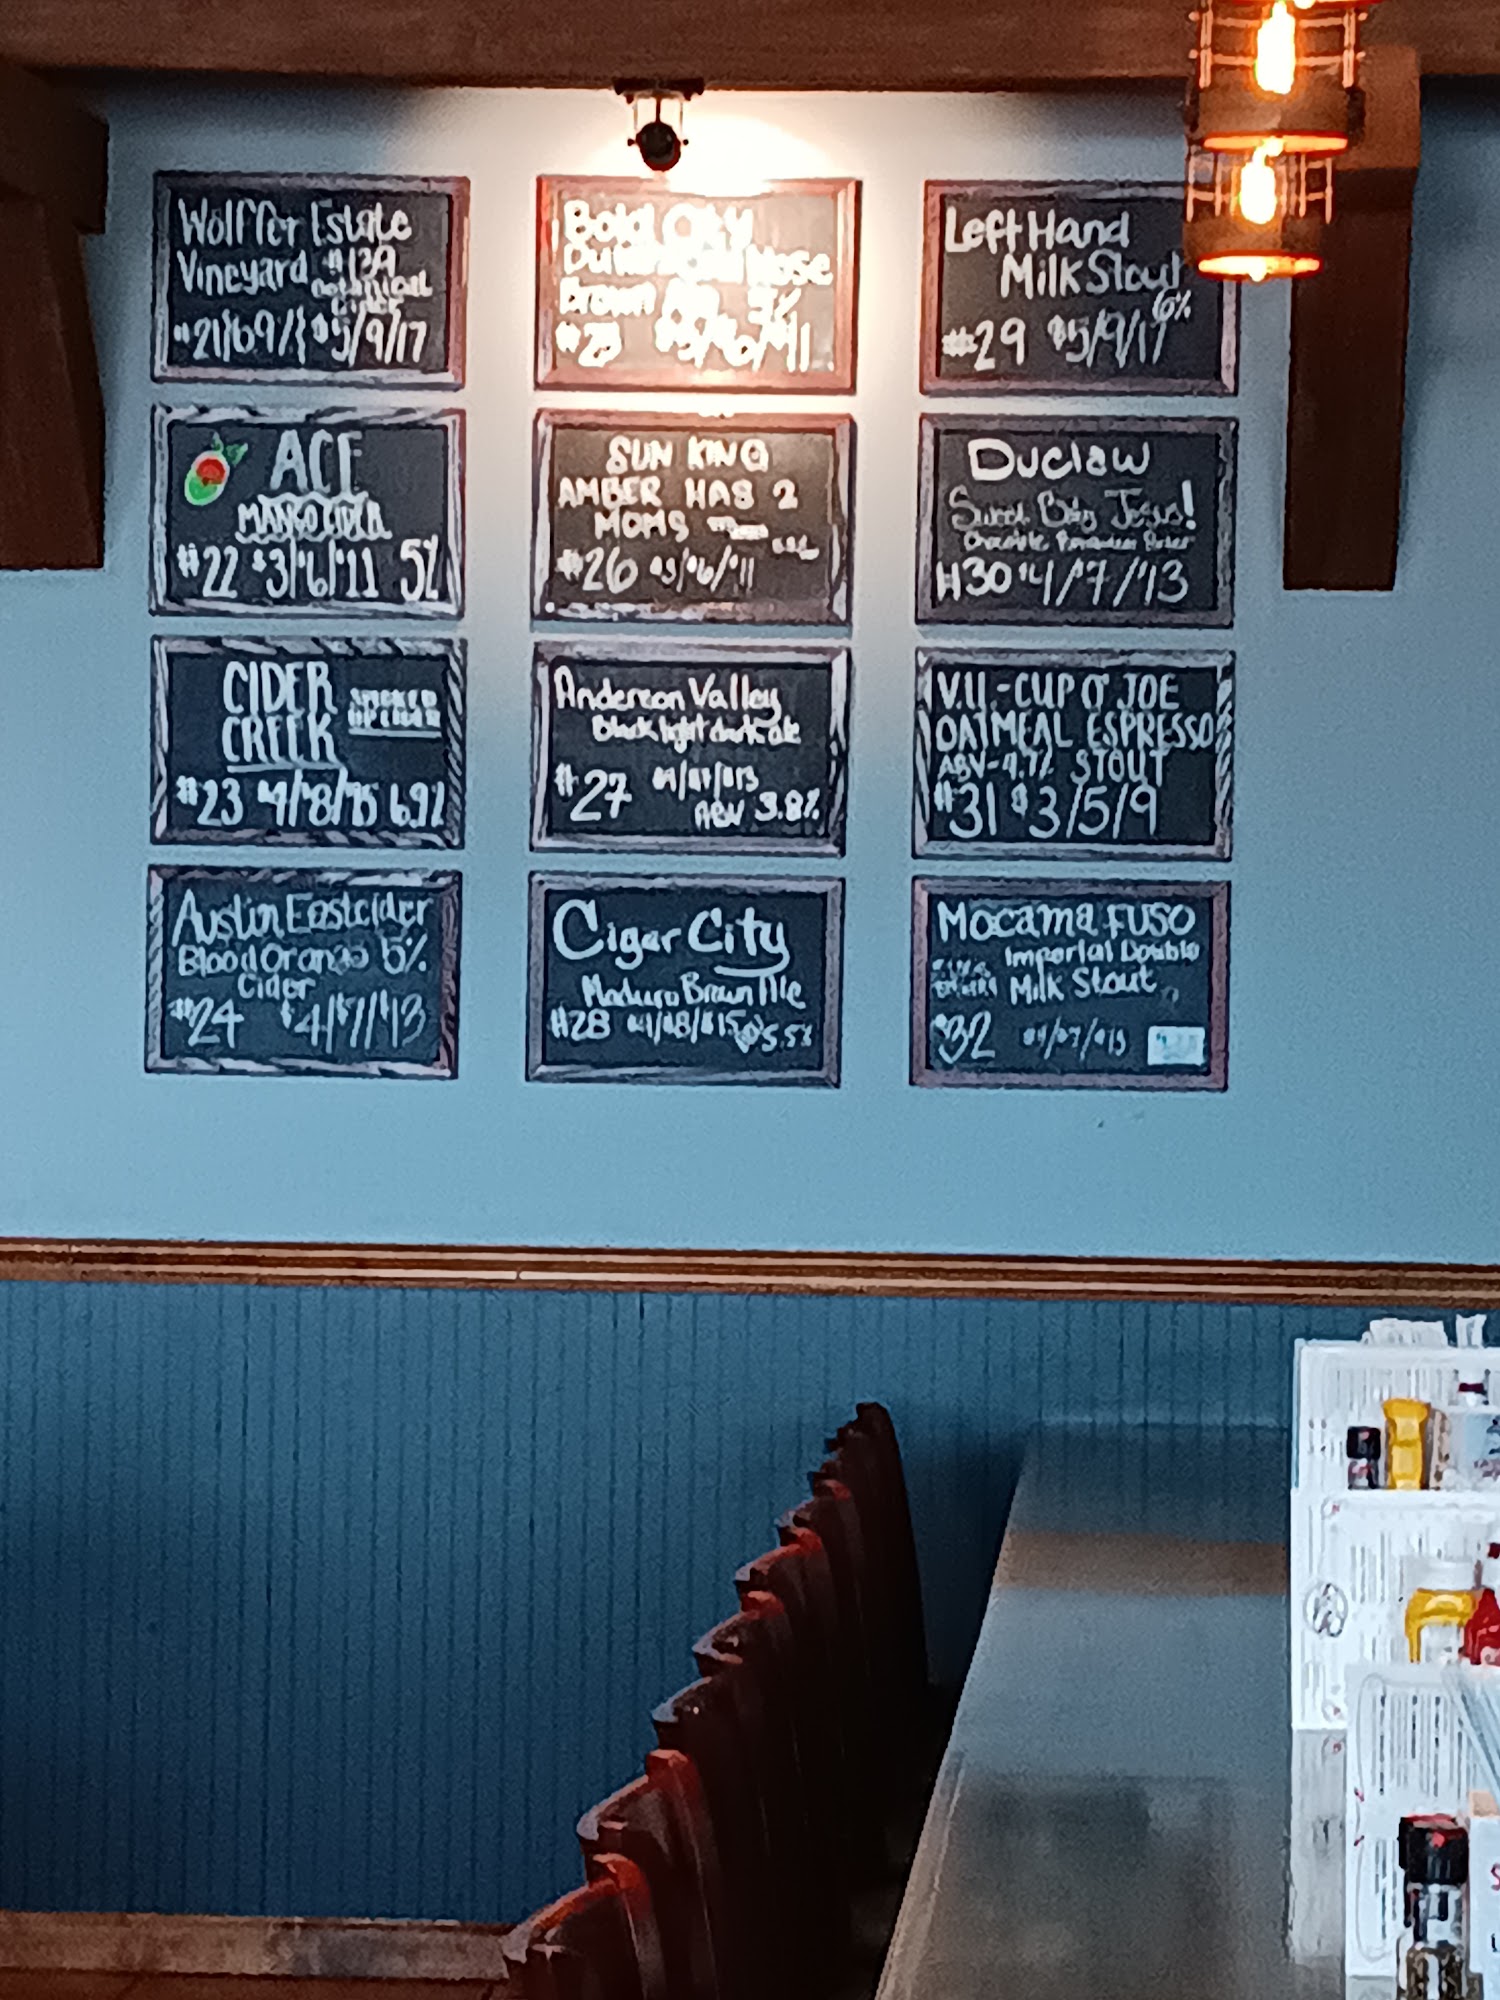 Wölffer Estate
Vineyard #139
Botanical
Cider
#21 6.9% $5/9/17
Bold City
Brown Ale 5%
#25 $3/$6/$11
Left Hand
Milk Stout
6%
#29 $5/9/17
ACE
MANGO CIDER
#22 $3/$6/$11 5%
SUN KING
AMBER HAS 2
MOMS
#26 $3/$6/$11
Duclaw
Sweet Baby Jesus!
Chocolate Peanutbutter Porter
#30 $4/$7/$13
CIDER
CREEK
#23 $4/$8/$15 6.9%
Anderson Valley
Black light dark ale
#27 $4/$7/$13
ABV 3.8%
V.II.-CUP O' JOE
OATMEAL ESPRESSO
ABV-4.7% STOUT
#31 $3/5/9
Austin Eastcider
Blood Orange 5%
Cider
#24 $4/$7/$13
Cigar City
Maduro Brown Ale
#28 $4/$8/$15 5.5%
Mocama FUSO
Imperial Double
Milk Stout
#32 $4/$7/$13